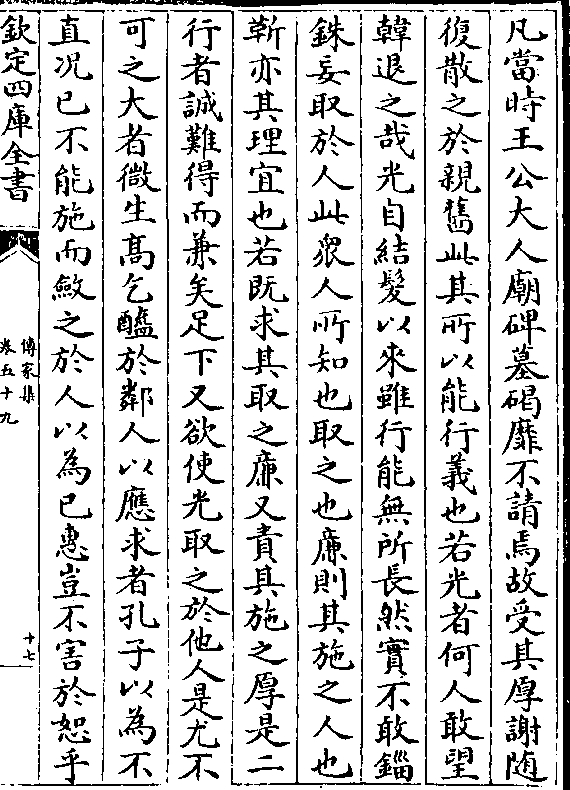 凡當時王公大人廟碑墓碣靡不請焉故受其厚謝隨
復散之於親舊此其所以能行義也若光者何人敢望
韓退之哉光自結髮以來雖行能無所長然實不敢錙
銖妄取於人此衆人所知也取之也廉則其施之人也
靳亦其理宜也若既求其取之廉又責其施之厚是二
行者誠難得而兼矣足下又欲使光取之於他人是尤不
可之大者微生髙乞醯於鄰人以應求者孔子以為不
直况已不能施而斂之於人以為已惠豈不害於恕乎
欽定四庫全書
傳家集
卷五十九
十七